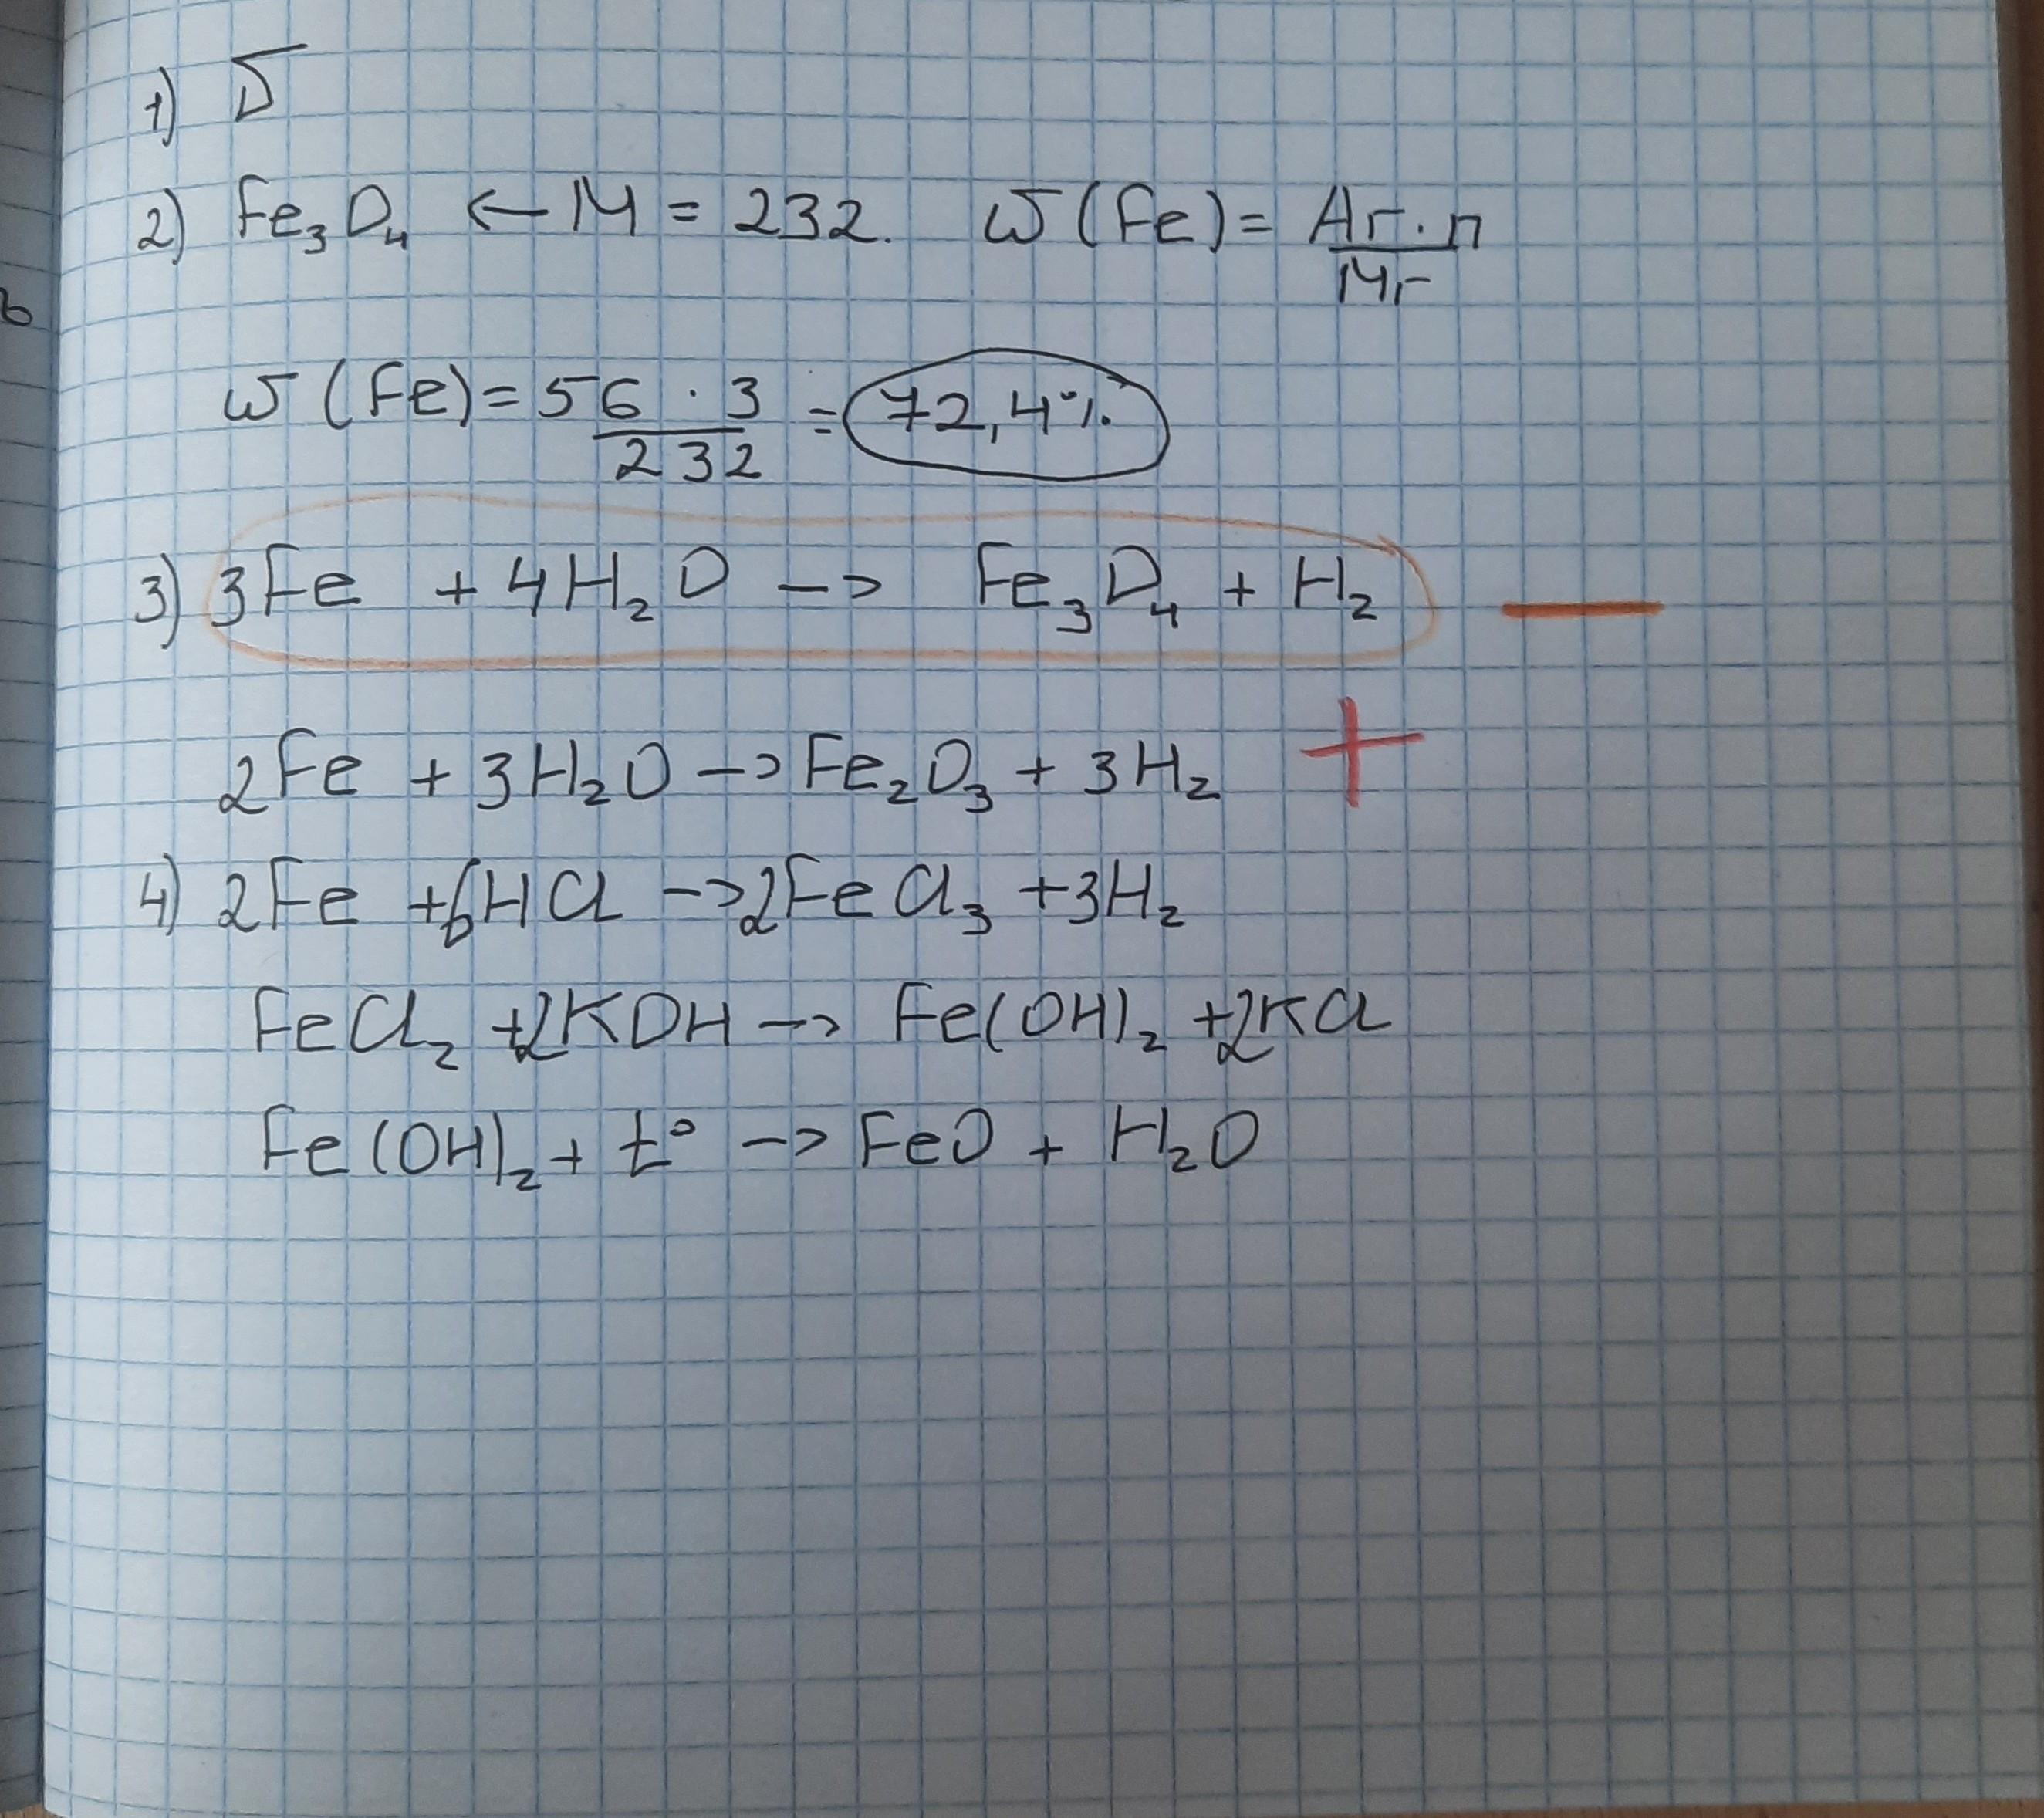 1) Б
2) Fe₃O₄ ← M = 232. ω(Fe) = Ar·n / Mr
ω (Fe) = 56 · 3 / 232 = 72,4%
3) 3Fe + 4H₂O –> Fe₃O₄ + H₂ —
2Fe + 3H₂O –> Fe₂O₃ + 3H₂ +
4) 2Fe +6HCl –> 2FeCl₃ +3H₂
FeCl₂ +2KOH –> Fe(OH)₂ +2KCl
Fe(OH)₂ + t° –> FeO + H₂O